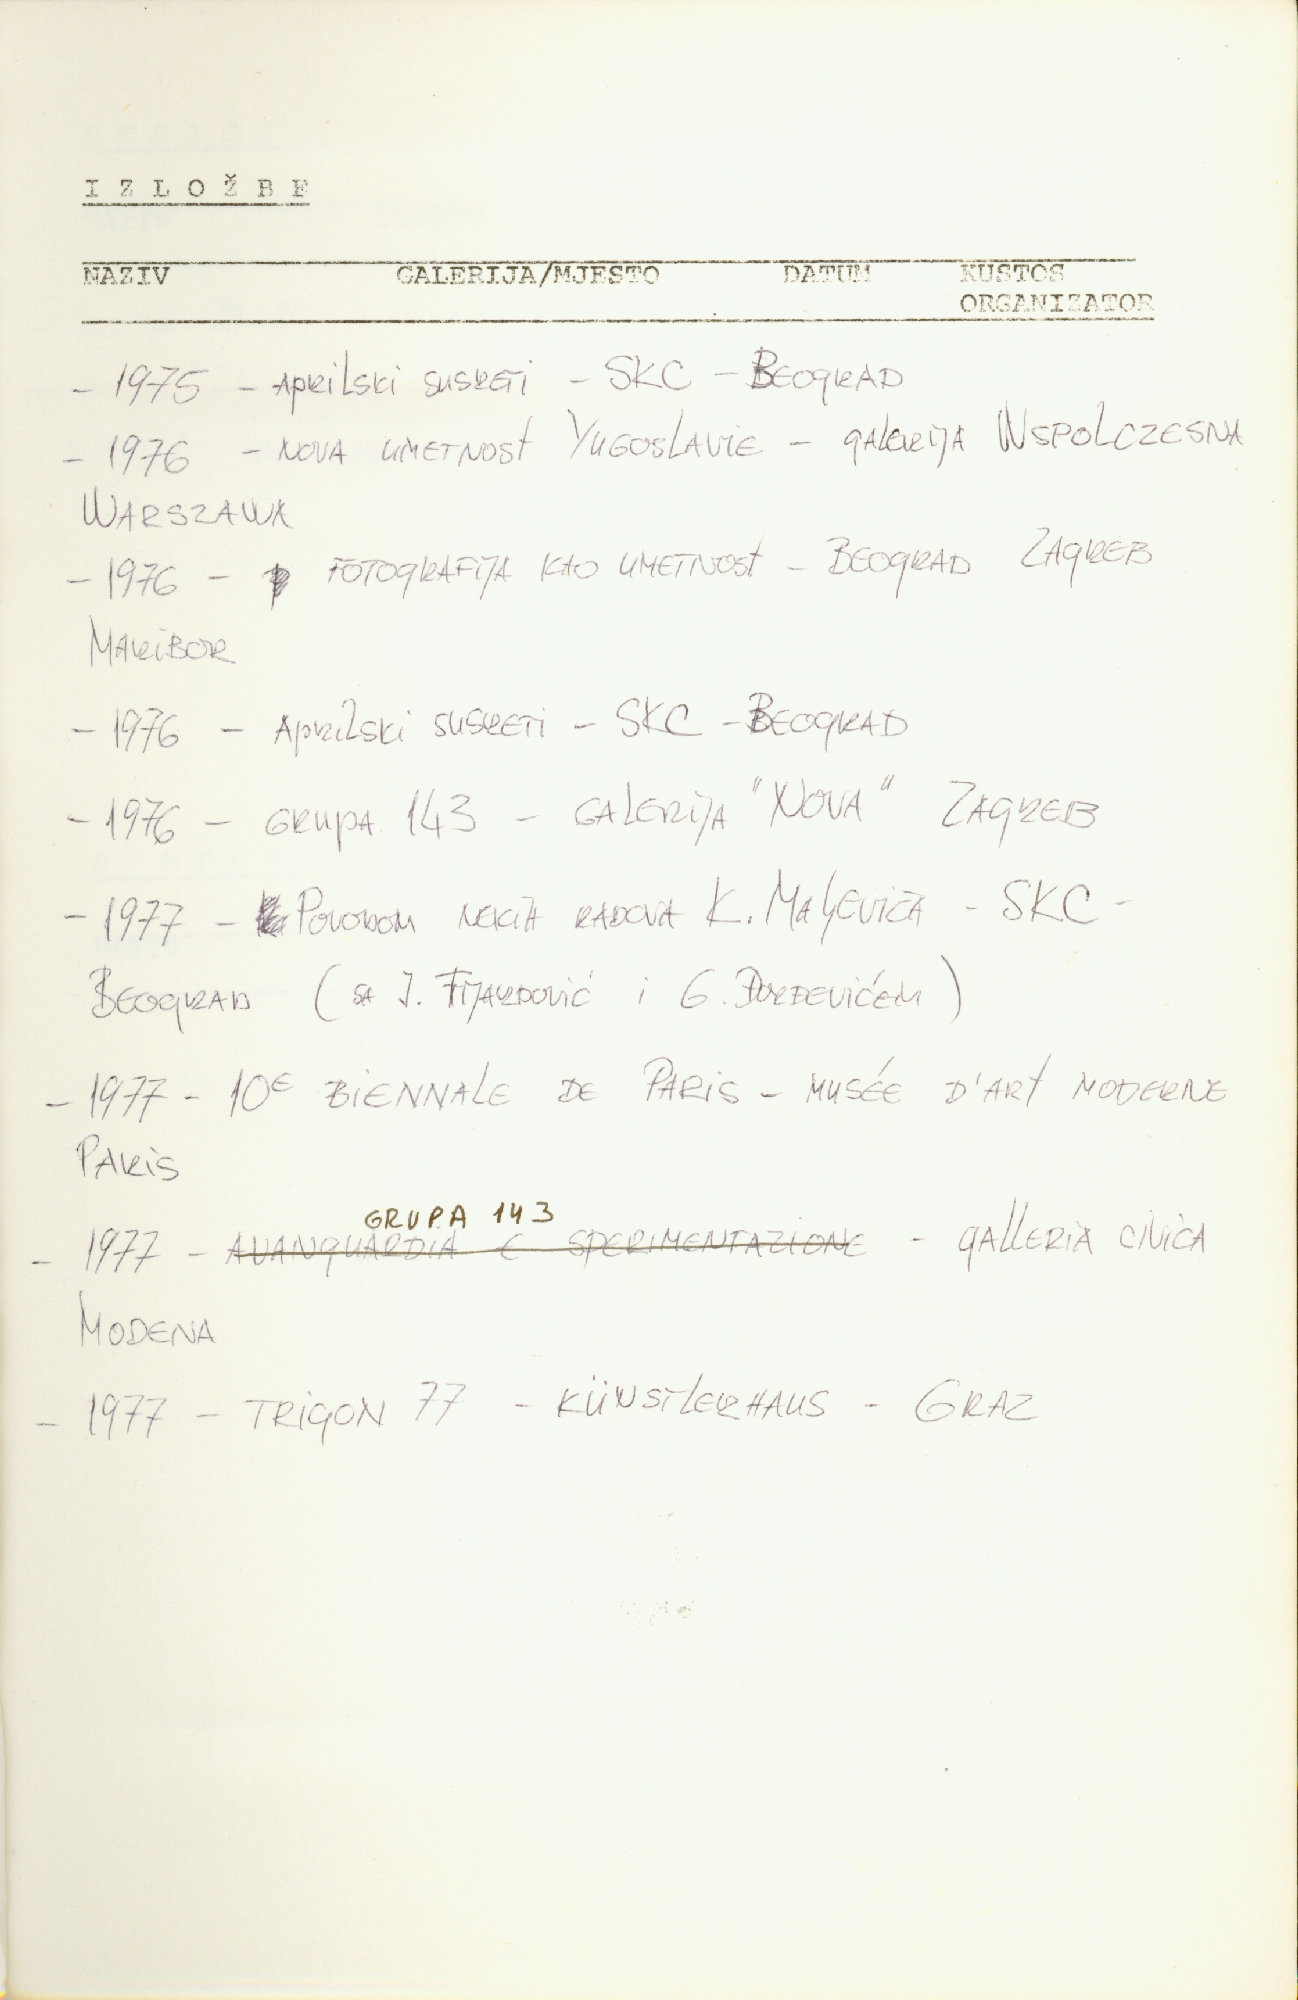 IZLOŽBE
NAZIV GALERIJA/MJESTO DATUM KUSTOS
ORGANIZATOR
- 1975 - Aprilski susreti - SKC - Beograd
- 1976 - Nova umetnost Yugoslavie - galerija Wspolczesna
Warszawa
- 1976 - Fotografija kao umetnost - Beograd Zagreb
Maribor
- 1976 - Aprilski susreti - SKC - Beograd
- 1976 - Grupa 143 - Galerija "Nova" Zagreb
- 1977 - Povodom nekih radova K. Maljeviča - SKC -
Beograd (sa J. Tijardović i G. Đorđevićem)
- 1977 - 10e Biennale de Paris - Musée d'art moderne
Paris
GRUPA 143
- 1977 - Avanguardia e sperimentazione - galleria civica
Modena
- 1977 - Trigon 77 - Künstlerhaus - Graz